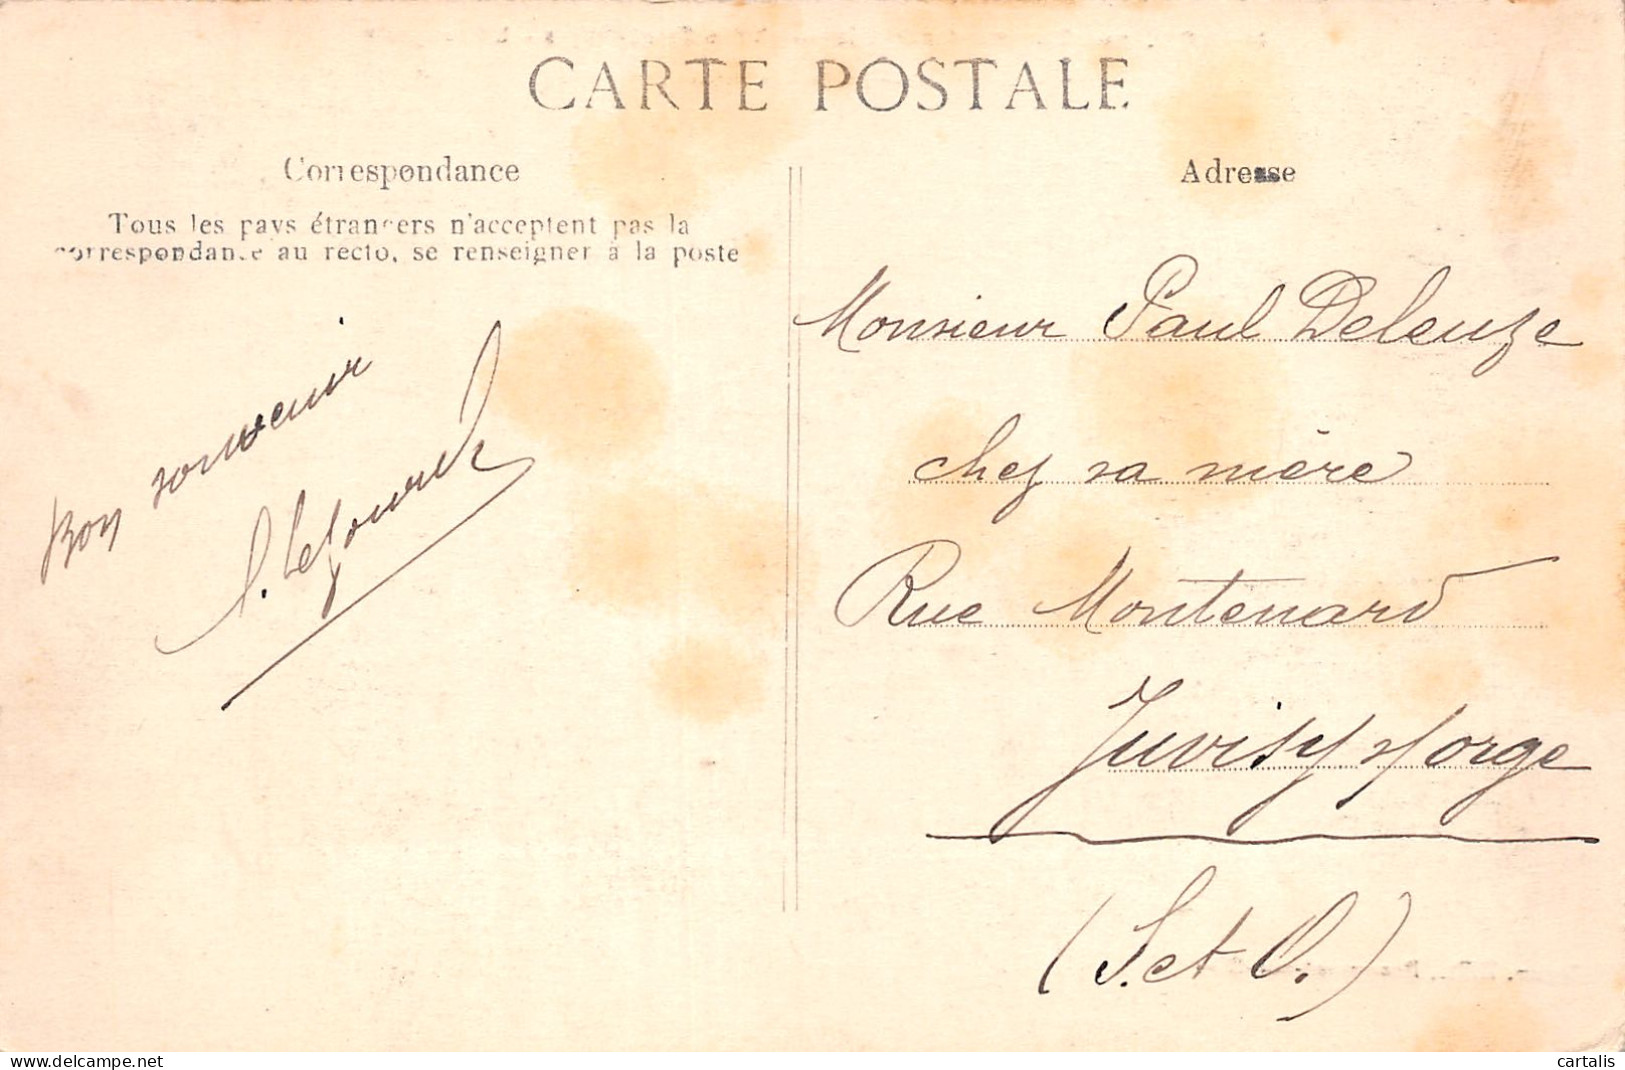 CARTE POSTALE
Correspondance
Tous les pays étrangers n'acceptent pas la
correspondance au recto, se renseigner à la poste
Bon souvenir
Adresse
Monsieur Paul Deleuze
chez sa mère
Rue Montenard
Juvisy s/ Orge
(S. et O.)
www.delcampe.net
cartalis